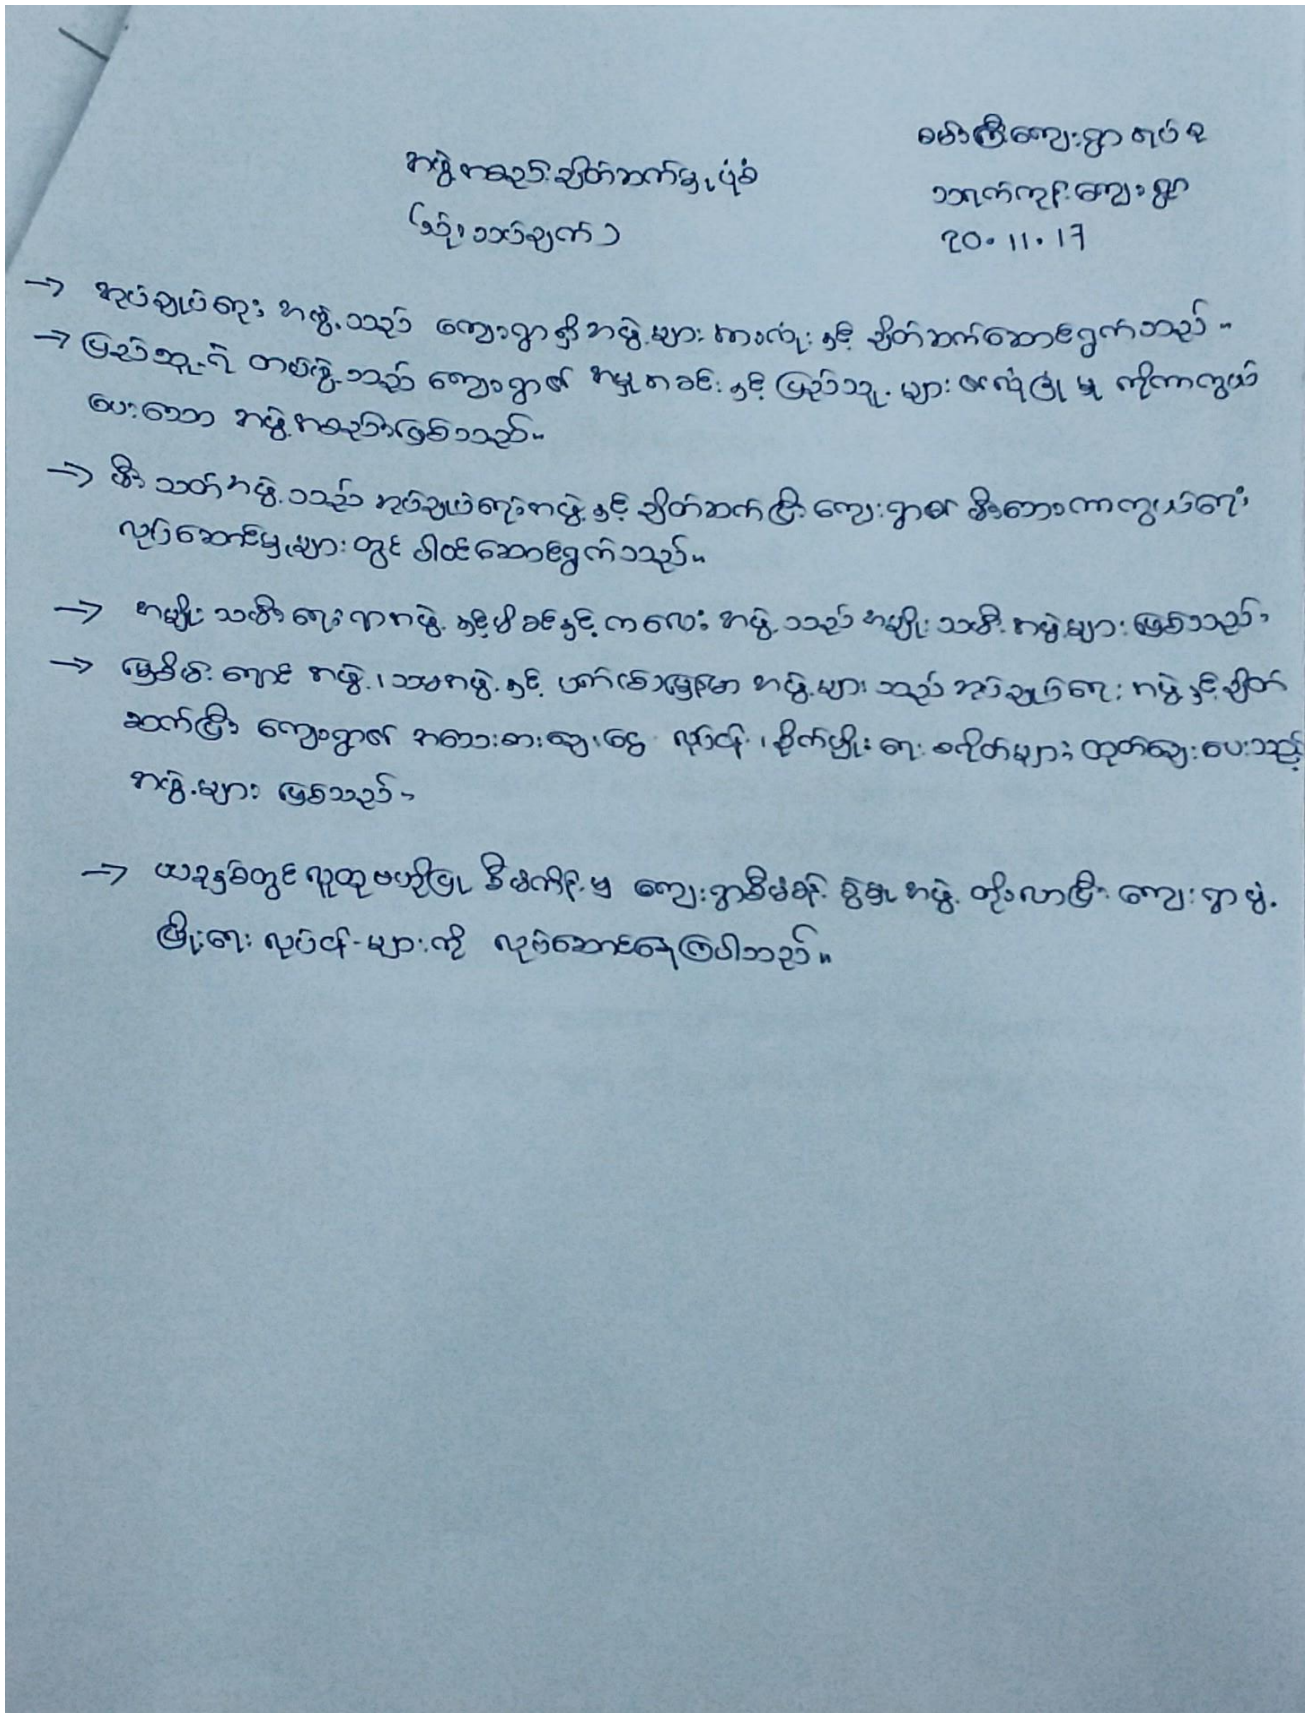 စမ်းကြီးကျေးရွာ ရပ်စု
အဖွဲ့အစည်းချိတ်ဆက်မှု ပုံစံ
သရက်ကုန်းကျေးရွာ
(သုံးသပ်ချက်)
20.11.17
→ အုပ်ချုပ်ရေး အဖွဲ့သည် ကျေးရွာရှိအဖွဲ့များ အားလုံးနှင့် ချိတ်ဆက်ဆောင်ရွက်သည်။
→ ပြည်သူ့ရဲ တပ်ဖွဲ့သည် ကျေးရွာ၏ အမှုအခင်းနှင့် ပြည်သူ့များ စလုံခြုံမှု ကိုကာကွယ်
ပေးသော အဖွဲ့အစည်းဖြစ်သည်။
→ မီးသတ်အဖွဲ့သည် အုပ်ချုပ်ရေးအဖွဲ့နှင့် ချိတ်ဆက်ပြီး ကျေးရွာ၏ မီးဘေးကာကွယ်ရေး
လုပ်ဆောင်မှုများတွင် ပါဝင်ဆောင်ရွက်သည်။
→ အမျိုးသမီးရေးရာအဖွဲ့နှင့်မိခင်နှင့် ကလေး အဖွဲ့သည် အမျိုးသမီးအဖွဲ့များ ဖြစ်သည်။
→ မြစိမ်းရောင် အဖွဲ့၊ သမအဖွဲ့နှင့် အဖွဲ့များသည် အုပ်ချုပ်ရေးအဖွဲ့နှင့်ချိတ်
ဆက်ပြီး ကျေးရွာ၏ အသေးစားချေးငွေ လုပ်ငန်း၊ စိုက်ပျိုးရေး စရိတ်များ ထုတ်ချေးပေးသည့်
အဖွဲ့များ ဖြစ်သည်။
→ ယခုနှစ်တွင် လူထုဗဟိုပြု စီမံကိန်းမှ ကျေးရွာစီမံခန့်ခွဲမှုအဖွဲ့ တိုးလာပြီး ကျေးရွာ ဖွံ့
ဖြိုးရေး လုပ်ငန်းများကို လုပ်ဆောင်နေကြပါသည်။